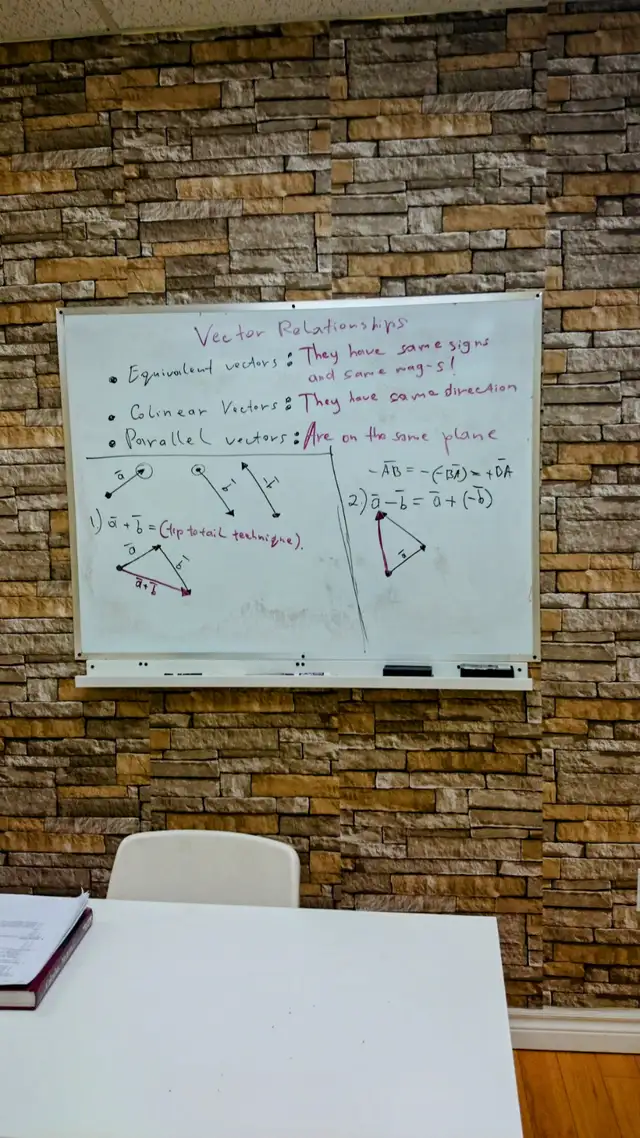 Vector Relationships
• Equivalent vectors: They have same signs
and same mag-s!
• Colinear Vectors: They have same direction
• Parallel vectors: Are on the same plane
a̅
b̅
-b̅
1) a̅ + b̅ = (tip to tail technique).
a̅
b̅
a̅+b̅
2) a̅ - b̅ = a̅ + (-b̅)
a̅